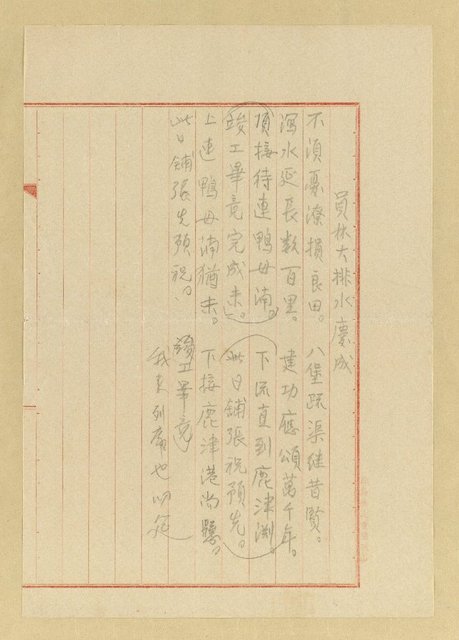 員林大排水慶成
不須憂潦損良田。八堡疏渠継昔賢。
瀉水延長数百里。建功應頌萬千年。
頂接待連鴨母湳。下流直到鹿津渊。
竣工畢竟完成未。此日鋪張祝預先。
上連鴨母湳猶未。下接鹿津港尚
此日鋪張先預祝。竣工畢竟
我来列席也